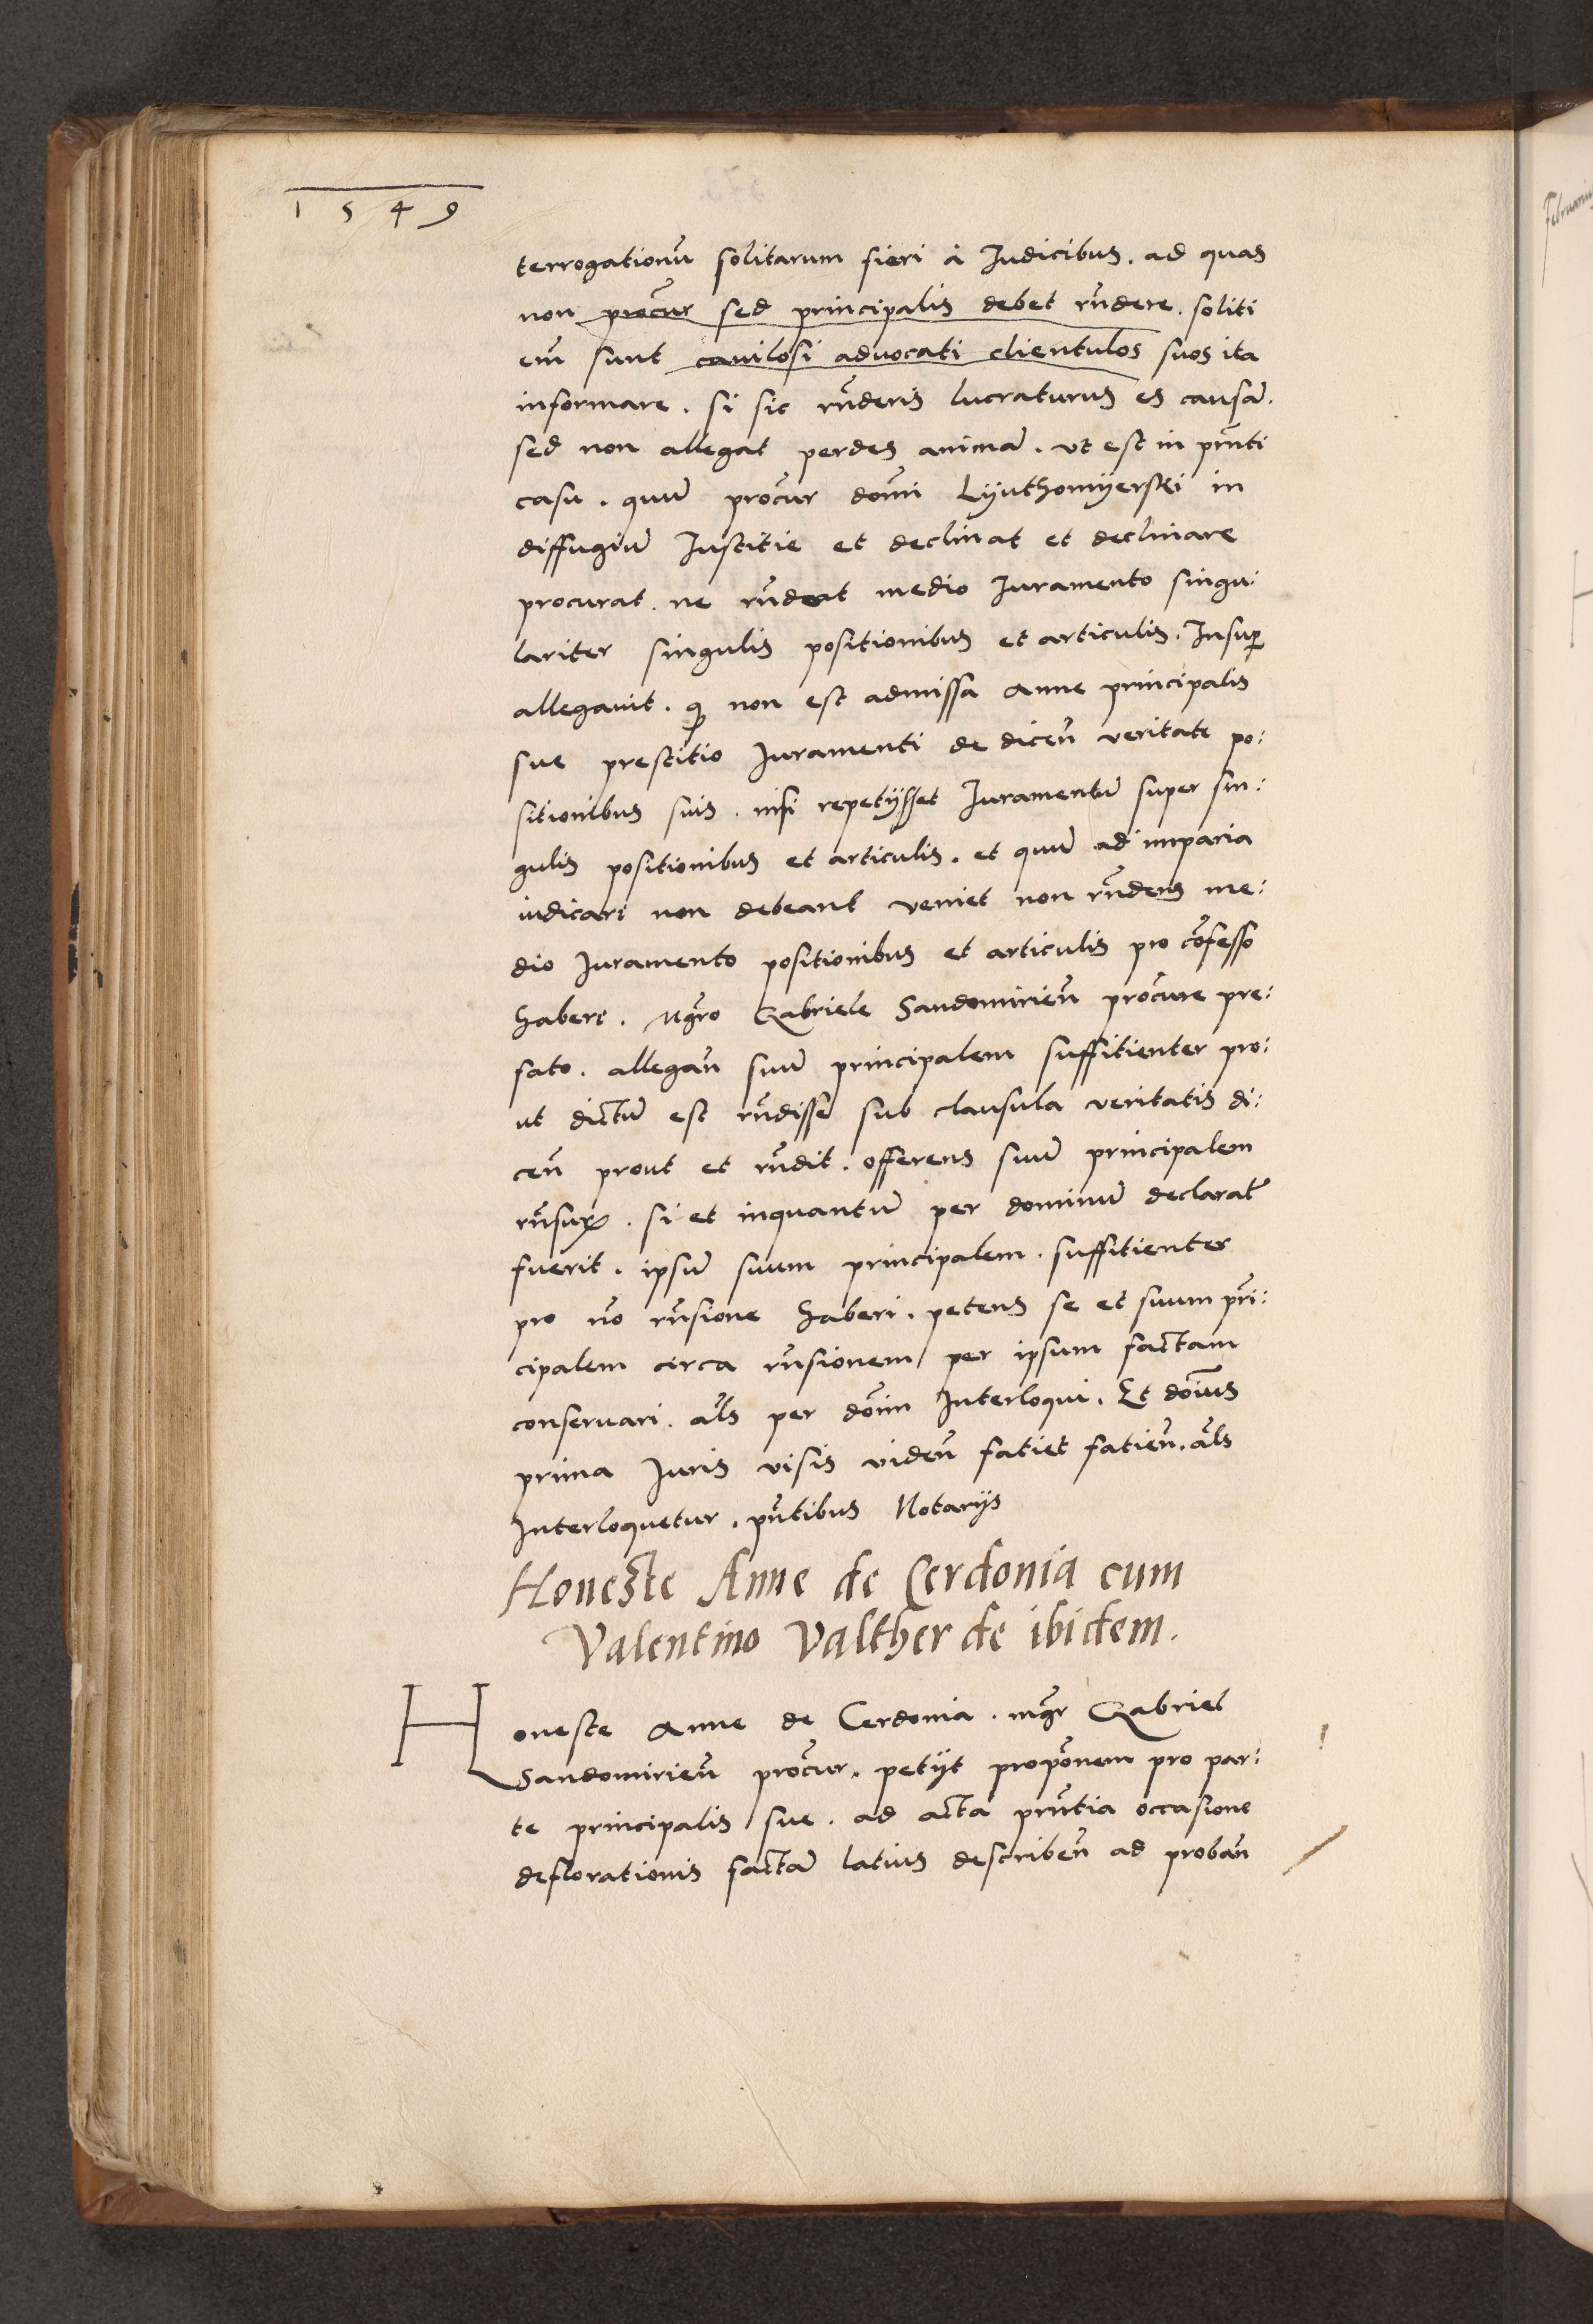 1549
terrogationū solitarum fieri à Iudicibus. ad quas
non procur̄ sed principalis debet rn̄dere. soliti
em̄ sunt cauilosi aduocati clientulos suos ita
informare. si sic rn̄deris lucraturus es causā.
sed non allegat perdes animā. vt est in pn̄ti
casu. quū procur̄ dom̄i Lyuthomyerski in
diffugiū Iustitie et declinat et declinare
procurat. ne rn̄deat medio Iuramento singu:
lariter singulis positionibus et articulis. Insuꝑ
allegauit. ꝙ non est admissa Anne principalis
sue prestitio Iuramenti de dicen̄ veritate po:
sitionibus suis. nisi repetijsset Iuramentū super sin:
gulis positionibus et articulis. et quū ad imparia
iudicari non debeant veniet non rn̄dens me:
dio Iuramento positionibus et articulis pro cōfesso
haberi. Mgr̄o Gabriele Sandomirien̄ procure pre:
fato. allegan̄ suū principalem suffitienter pro:
ut dictū est rn̄disse sub clausula veritatis di:
cen̄ prout et rn̄dit. offerens suū principalem
rn̄suꝝ. si et inquantū per dominū declaratū
fuerit. ipsū suum principalem. suffitienter
pro nō rn̄sione haberi. petens se et suum prī:
cipalem circa rn̄sionem per ipsum factam
conseruari. al̄s per dom̄ Interloqui. Et dom̄us
prima Iuris visis viden̄ fatiet fatien̄. al̄s
Interloquetur. pn̄tibus Notarijs
Honeste Anne de Cerdonia cum
Valentino Valther de ibidem.
Honeste Anne de Cerdonia. mgr̄ Gabriel
Sandomirien̄ procur̄. petijt propōnem pro par:
te principalis sue. ad acta prn̄tia occasione
deflorationis factā latius describen̄ ad proban̄